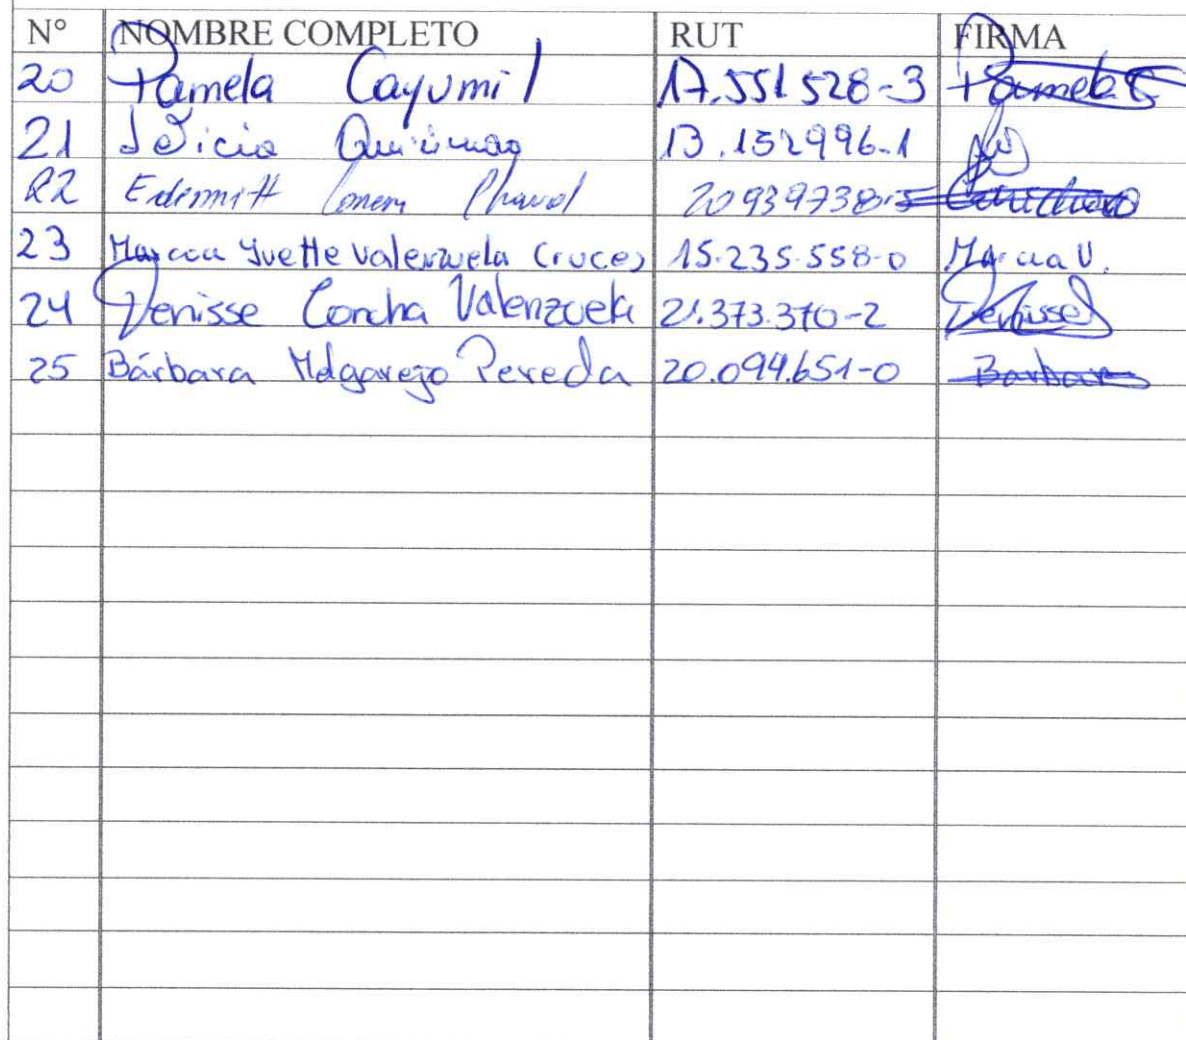 N° NOMBRE COMPLETO RUT FIRMA
20 Pamela Cayumil 17.551528-3 Pamela C
21 13.152996-1
22 20939738-5
23 Marcia Yvette Valenzuela Cruces 15.235.558-0 Marcia V.
24 Denisse Concha Valenzuela 21.373.370-2 Denisse
25 Bárbara Melgarejo Pereda 20.094.651-0 Barbara